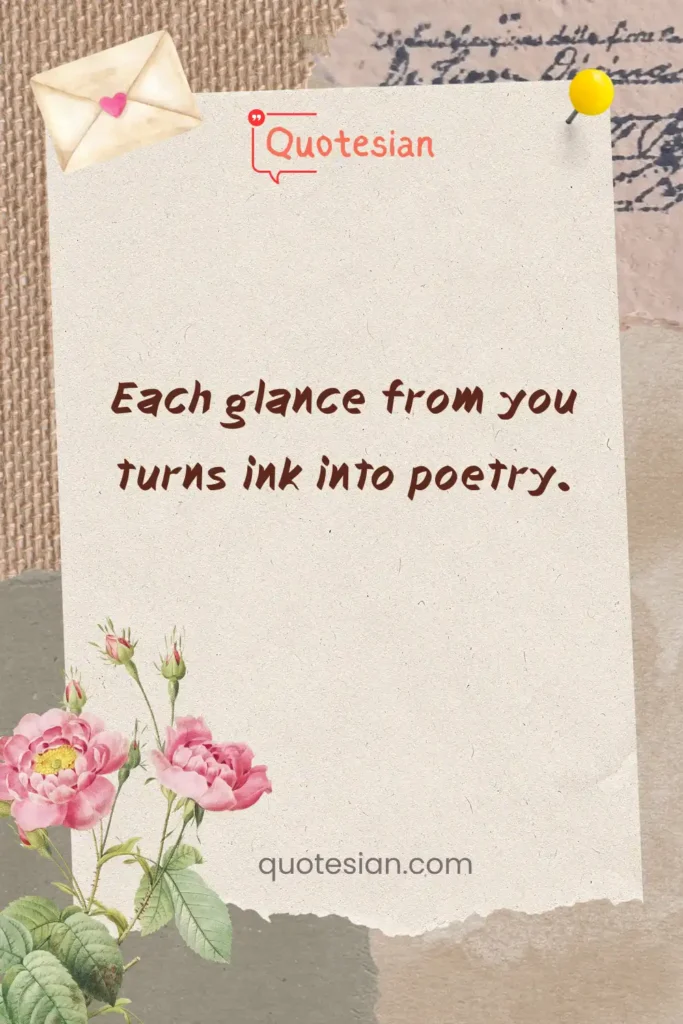 Quotesian
Each glance from you
turns ink into poetry.
quotesian.com